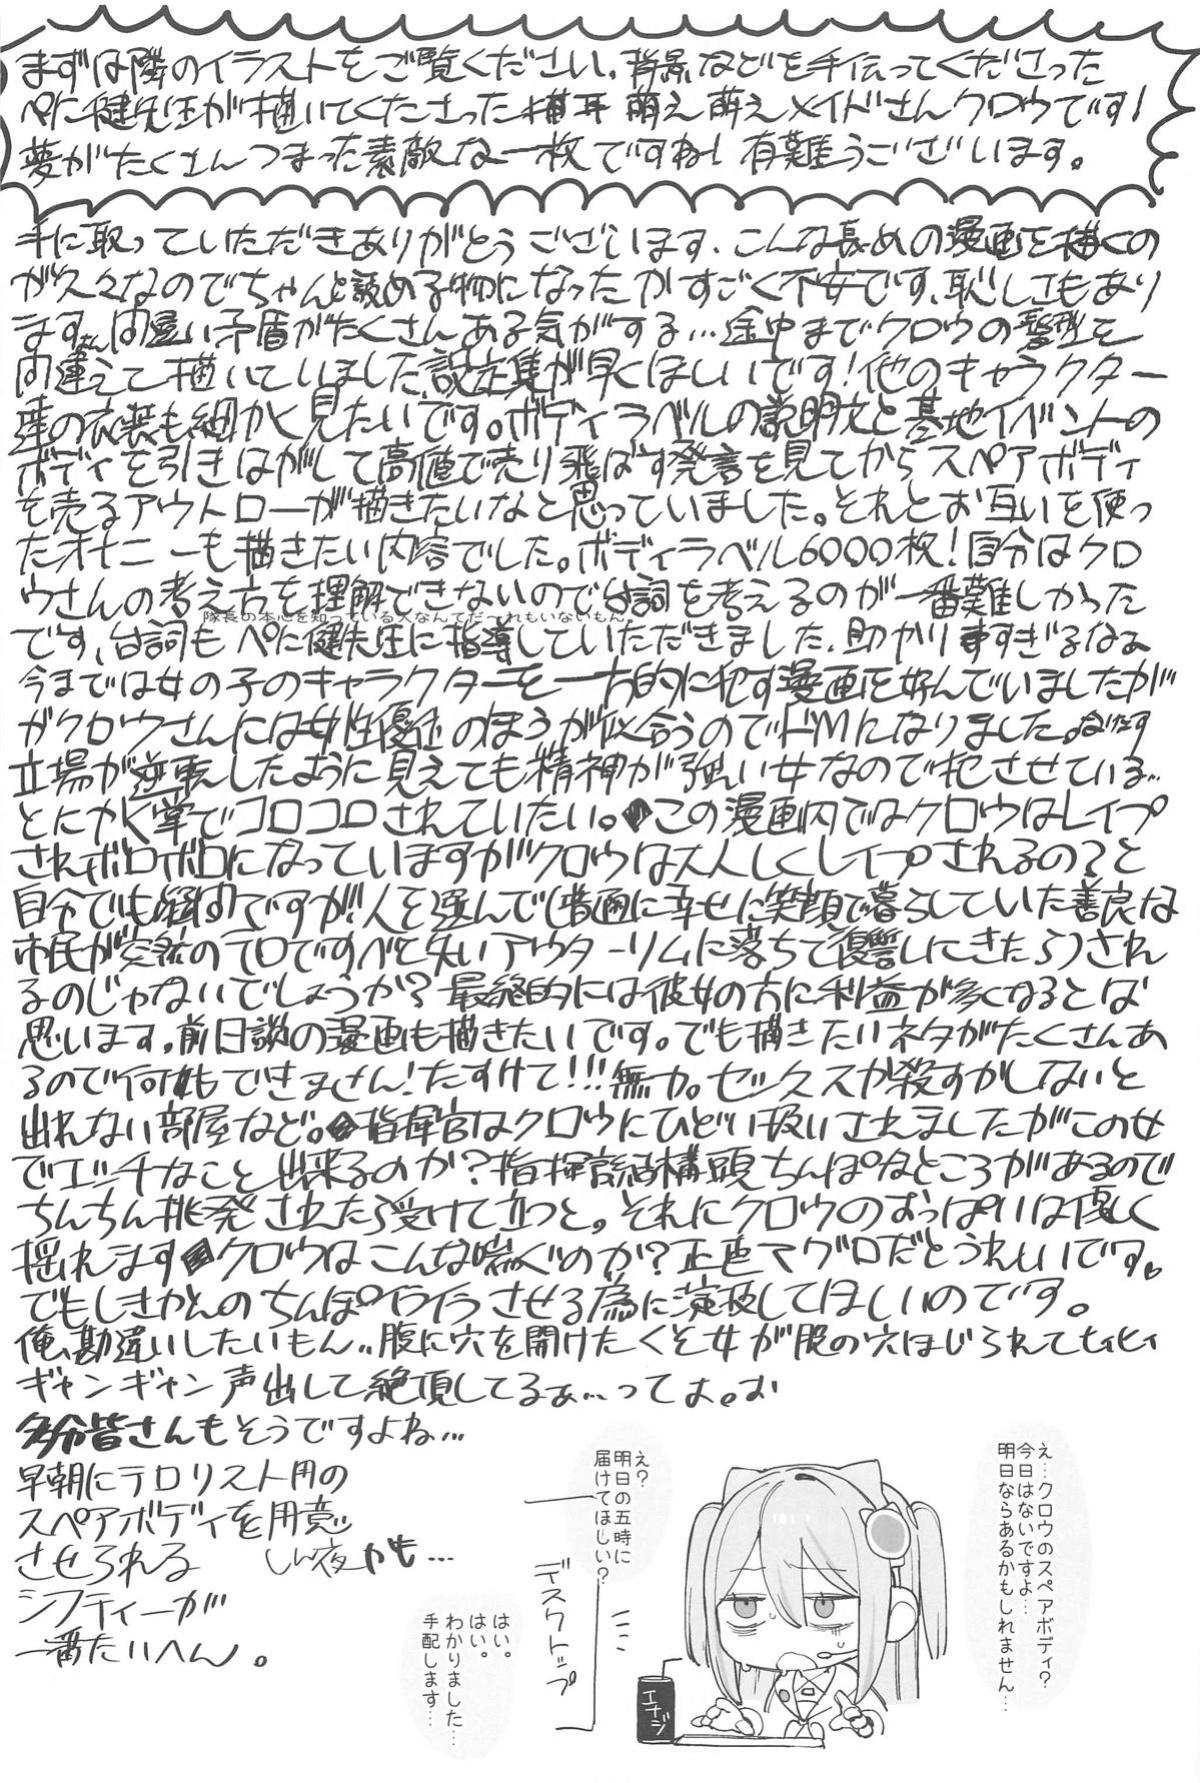 まずは隣のイラストをご覧ください。背景などを手伝ってくださった
ぺに健先生が描いてくださった猫耳萌え萌えメイドさんクロウです!
夢がたくさんつまった素敵な一枚ですね!有難うございます。
手に取っていただきありがとうございます、こんな長めの漫画を描くの
が久々なのでちゃんと読める物になったかすごく不安です、恥しさもあり
ます。間違い矛盾がたくさんある気がする…途中までクロウの髪型を
間違えて描いていました設定集が早くほしいです!他のキャラクター
達の衣装も細かく見たいです。ボディラベルの説明文と基地イベントの
ボディを引きはがして高値で売り飛ばす発言を見てからスペアボディ
を売るアウトローが描きたいなと思っていました。それとお互いを使っ
たオナニーも描きたい内容でした。ボディラベル6000枚!自分はクロ
ウさんの考え方を理解できないので台詞を考えるのが一番難しかった
隊長の本心を知っている人なんてだーれもいないもん。
です、台詞もぺに健先生に指導していただきました、助かりますすぎるなぁ
今までは女の子のキャラクターを一方的に犯す漫画を好んでいましたが
がクロウさんには女性優位のほうが似合うのでドMになりました。
立場が逆転したように見えても精神が強い女なので犯させている…
とにかく掌でコロコロされていたい。この漫画内ではクロウはレイプ
されボロボロになっていますがクロウは大人しくレイプされるの?と
自分でも疑問ですが!人を選んで(普通に幸せに笑顔で暮らしていた善良な
市民が突然のテロですべて失いアウターリムに落ちて復讐しにきたら)され
るのじゃないでしょうか?最終的には彼女の方に利益が多くなるとは
思います。前日談の漫画も描きたいです。でも描きたいネタがたくさんあ
るので何もできません!たすけて!!!無力。セックスか殺すかしないと
出れない部屋など。指揮官はクロウにひどい扱いされましたがこの女
でエッチなこと出来るのか?指揮官結構頭ちんぽなところがあるので
ちんちん挑発されたら受けて立つと。それにクロウのおっぱいは優しく
揺れます クロウはこんな喘ぐのか?正直マグロだとうれしいです。
でもしきかんのちんぽイライラさせる為に演技してほしいのです。
俺、勘違いしたいもん..腹に穴を開けたくそ女が股の穴ほじられてヒィヒィ
ギャンギャン声出して絶頂してるぁ…ってよ。お
多分皆さんもそうですよね…
早朝にテロリスト用の
スペアボディを用意
させられる しん夜かも…
シフティーが
一番たいへん。
え…クロウのスペアボディ?
今日はないですよ…
明日ならあるかもしれません…
え?
明日の五時に
届けてほしい?
デスクトップ
はい。
はい。
わかりました…
手配します…
エナジ